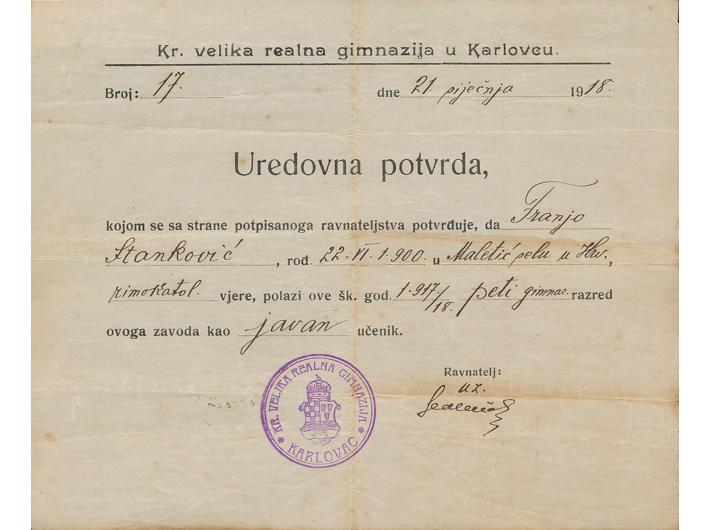 Kr. velika realna gimnazija u Karlovcu.
Broj: 17. dne 21. siječnja 1918.
Uredovna potvrda,
kojom se sa strane potpisanoga ravnateljstva potvrđuje, da Franjo
Stanković, rod. 22. VI. 1.900. u Maletić selu u Hrv.,
rimokatol. vjere, polazi ove šk. god. 1.917/18. peti gimnaz. razred
ovoga zavoda kao javan učenik.
Ravnatelj:
u z.
* KR. VELIKA REALNA GIMNAZIJA * KARLOVAC